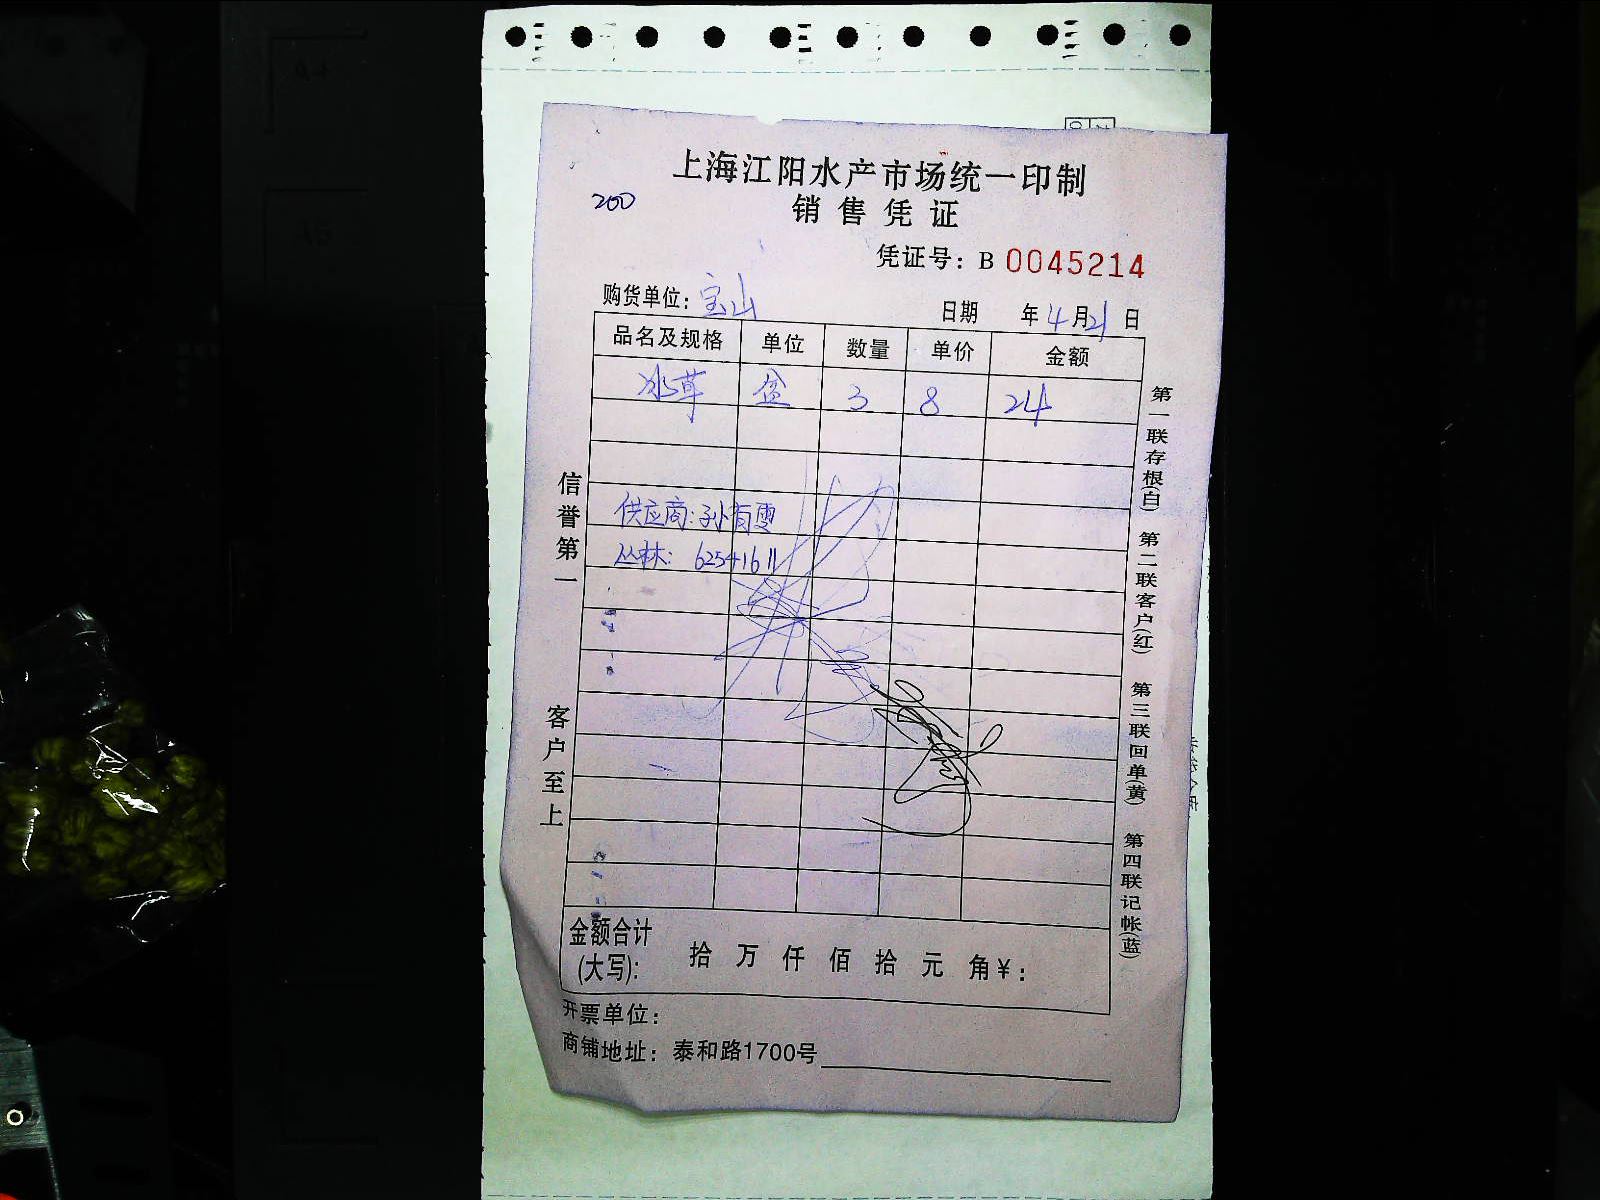 上海江阳水产市场统一印制
200
销售凭证
凭证号：B 0045214
购货单位：宝山 日期 年4月21日
品名及规格 单位 数量 单价 金额
冰草 盆 3 8 24
供应商：孙有雯
丛林：62541611
信誉第一
客户至上
第一联存根(白) 第二联客户(红) 第三联回单(黄) 第四联记帐(蓝)
金额合计
(大写)： 拾 万 仟 佰 拾 元 角￥：
开票单位：
商铺地址：泰和路1700号